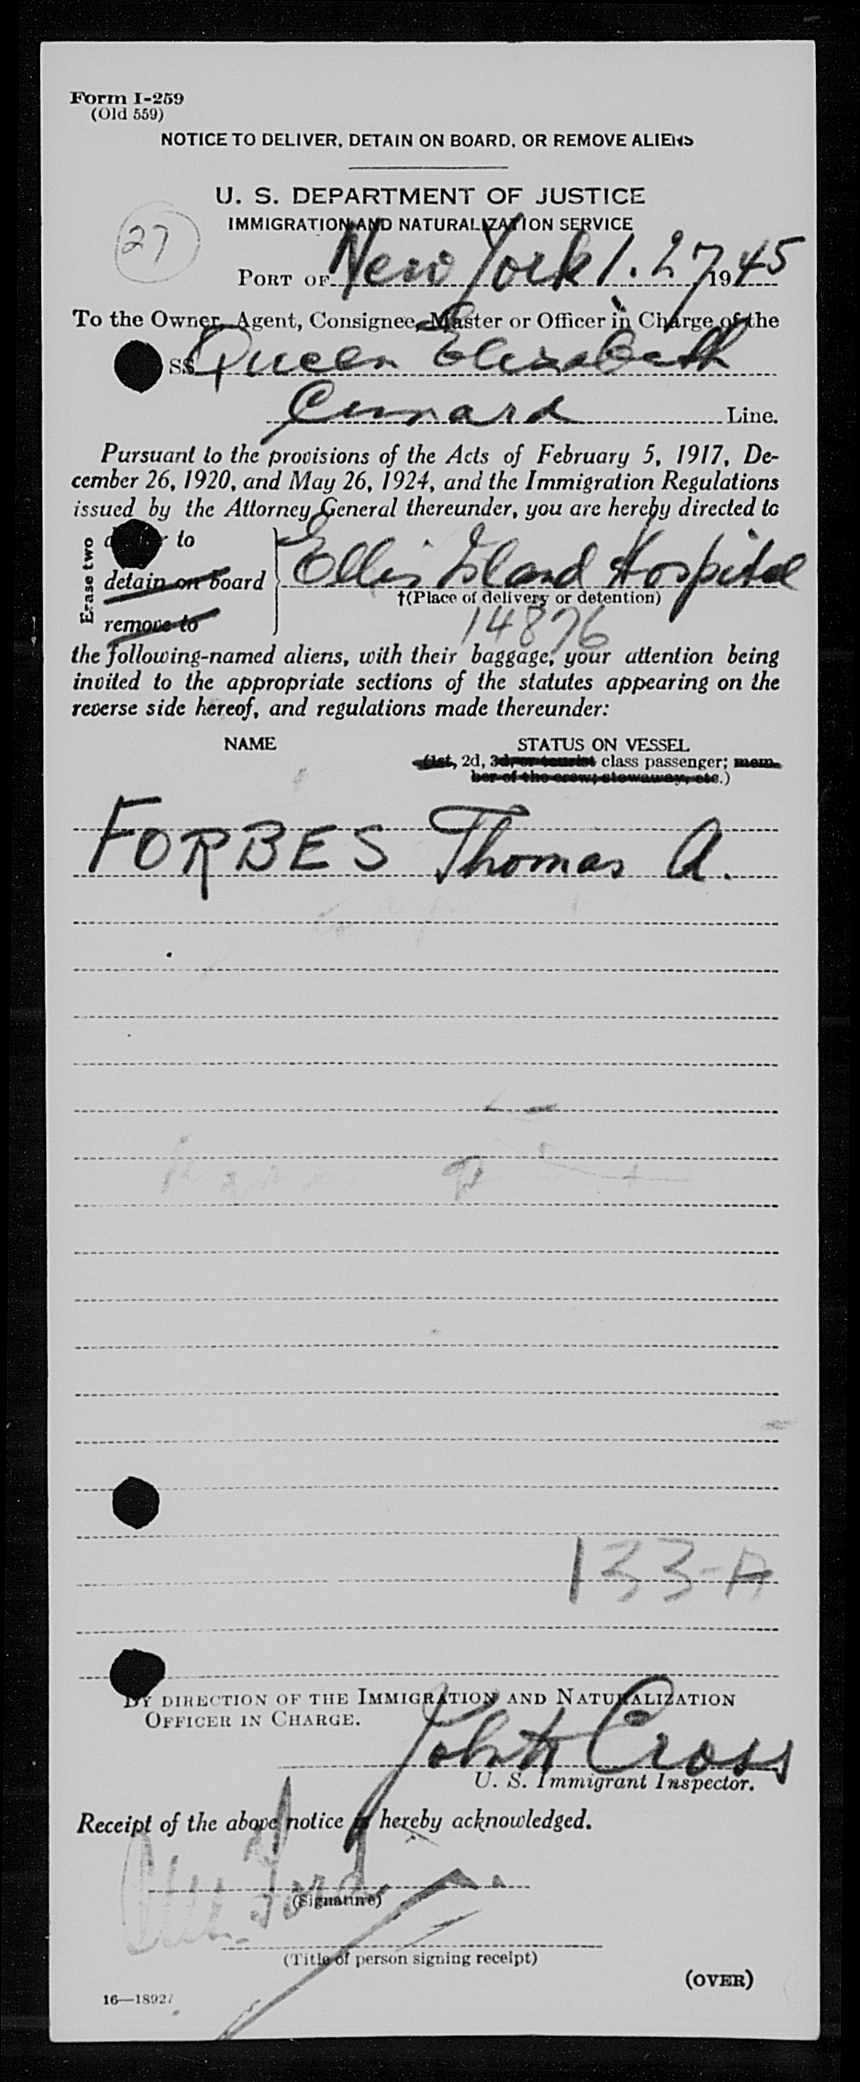 Form I-259
(Old 559)
NOTICE TO DELIVER, DETAIN ON BOARD, OR REMOVE ALIENS
U. S. DEPARTMENT OF JUSTICE
IMMIGRATION AND NATURALIZATION SERVICE
27
PORT OF New York 1. 27, 1945
To the Owner, Agent, Consignee, Master or Officer in Charge of the
SS Queen Elizabeth
Cunard Line.
Pursuant to the provisions of the Acts of February 5, 1917, De-
cember 26, 1920, and May 26, 1924, and the Immigration Regulations
issued by the Attorney General thereunder, you are hereby directed to
Erase two
to
detain on board
remove to
Ellis Island Hospital
†(Place of delivery or detention)
14876
the following-named aliens, with their baggage, your attention being
invited to the appropriate sections of the statutes appearing on the
reverse side hereof, and regulations made thereunder:
NAME STATUS ON VESSEL
(1st, 2d, 3d, or tourist class passenger; mem-
ber of the crew; stowaway, etc.)
FORBES Thomas A.
133-A
BY DIRECTION OF THE IMMIGRATION AND NATURALIZATION
OFFICER IN CHARGE.
John H Cross
U. S. Immigrant Inspector.
Receipt of the above notice is hereby acknowledged.
Ford
(Signature)
(Title of person signing receipt)
(OVER)
16—18927